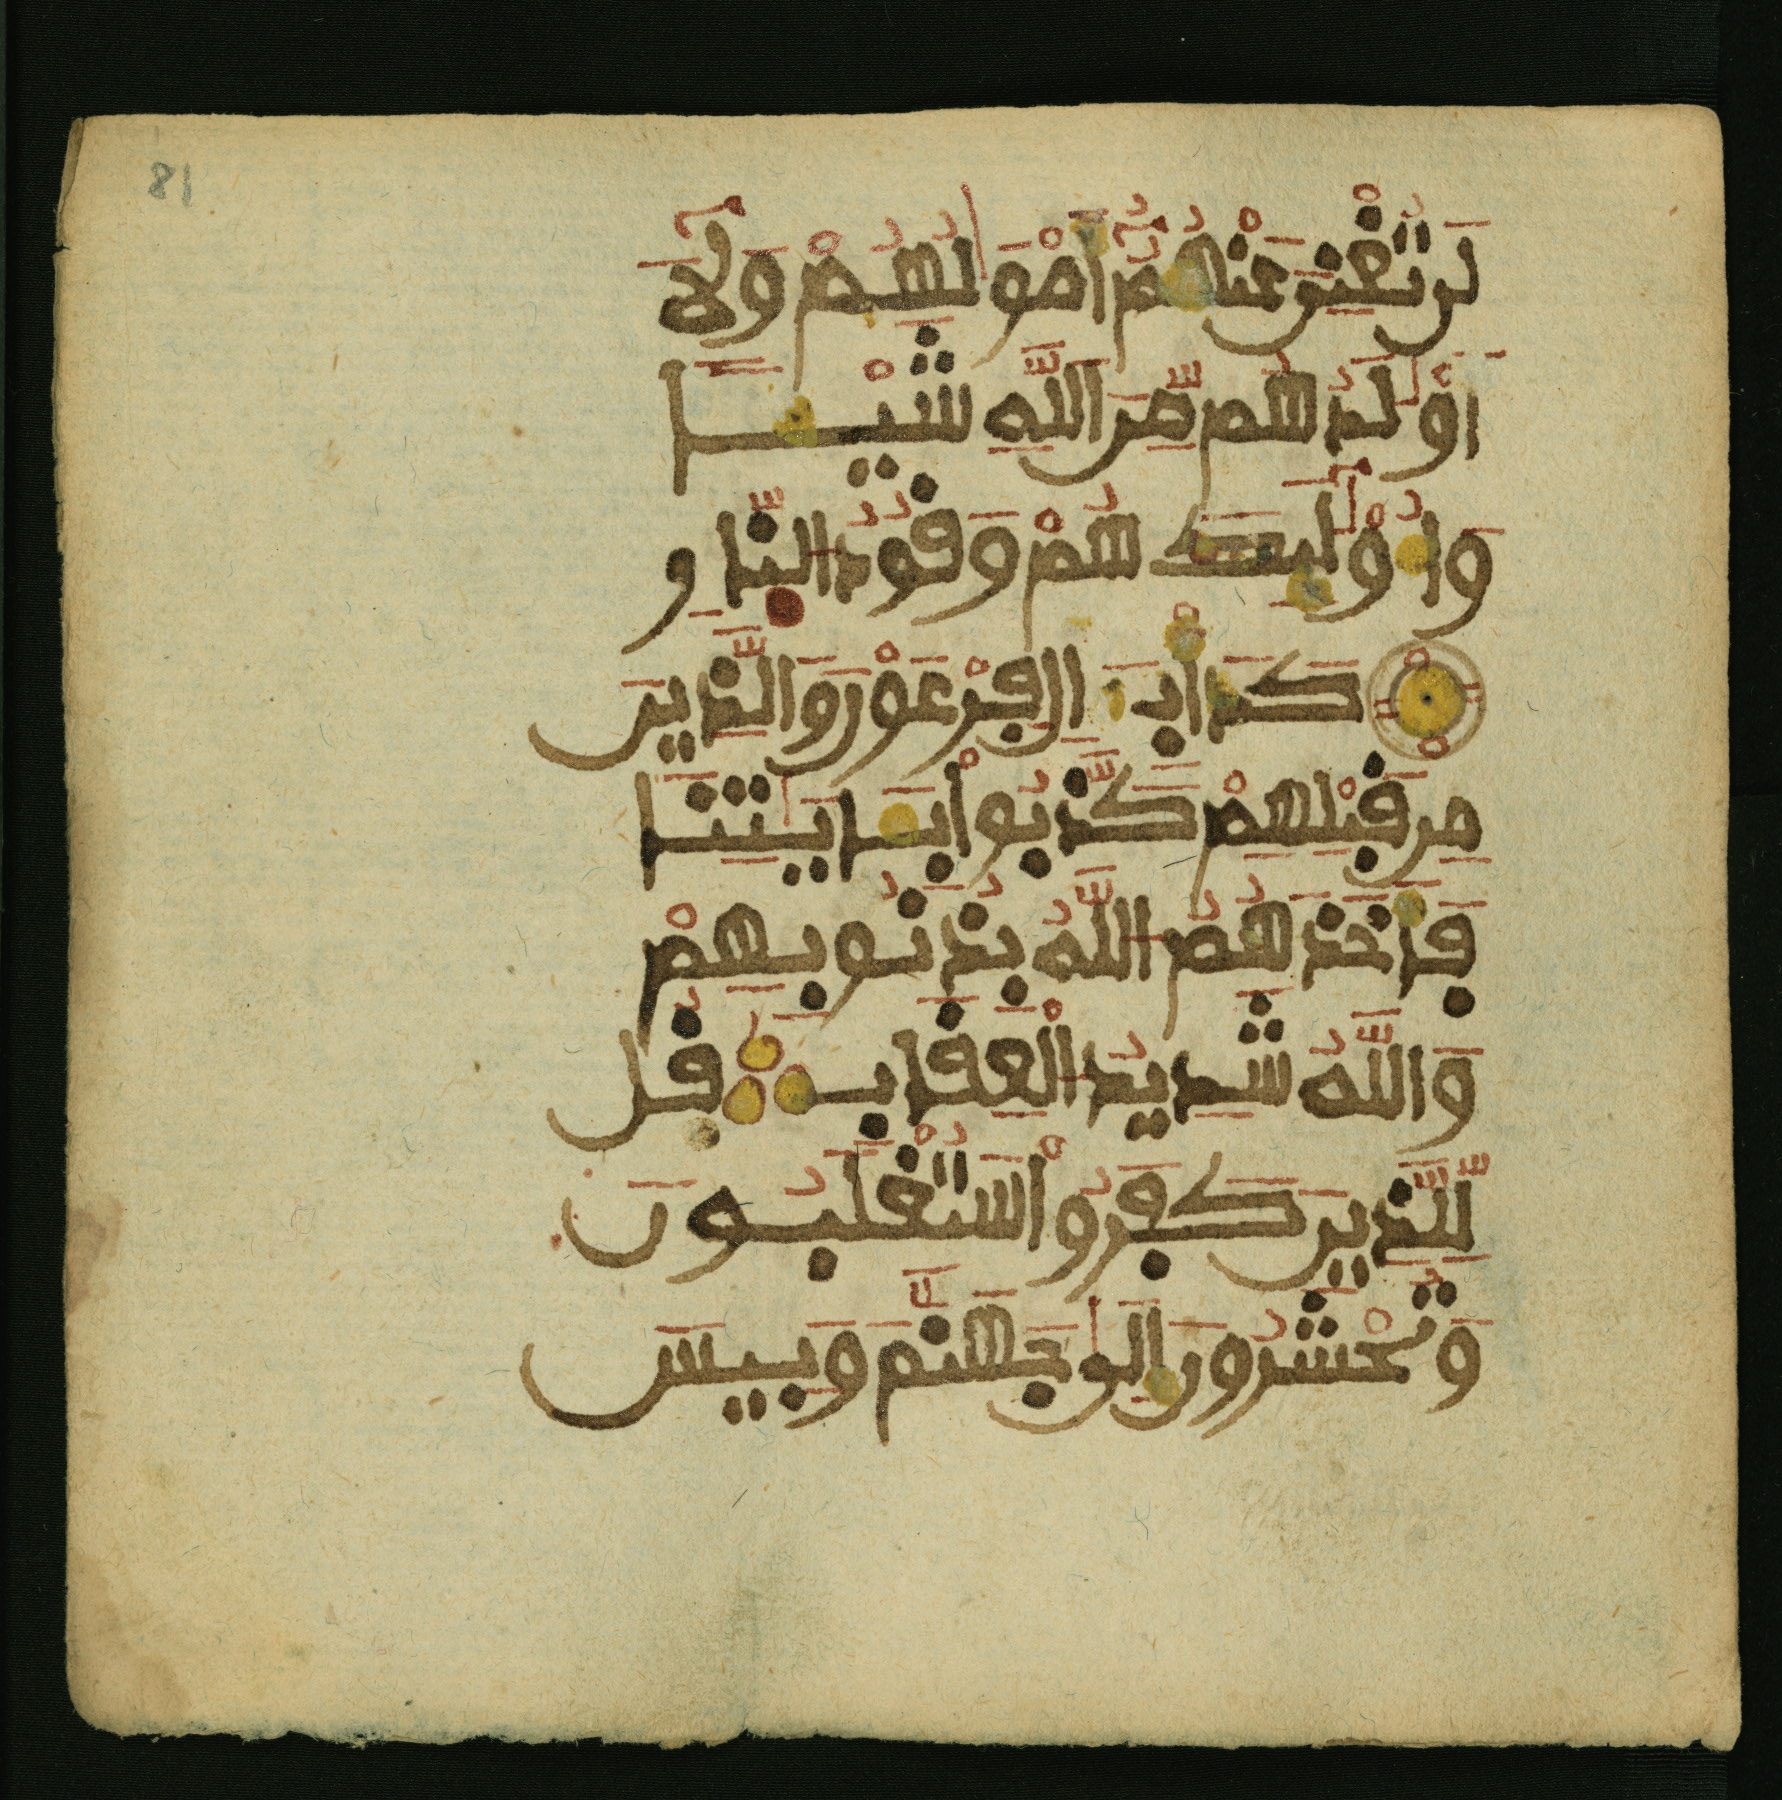 81
لَن تُغْنِيَ عَنْهُمُۥٓ أَمْوَٰلُهُمْ وَلَآ
أَوْلَٰدُهُم مِّنَ ٱللَّهِ شَيْـًٔا
وَأُوْلَٰٓئِكَ هُمْ وَقُودُ ٱلنَّارِ
كَدَأْبِ ءَالِ فِرْعَوْنَ وَٱلَّذِينَ
مِن قَبْلِهِمْ كَذَّبُوا۟ بِـَٔايَٰتِنَا
فَأَخَذَهُمُ ٱللَّهُ بِذُنُوبِهِمْ
وَٱللَّهُ شَدِيدُ ٱلْعِقَابِ قُل
لِّلَّذِينَ كَفَرُوا۟ سَتُغْلَبُونَ
وَتُحْشَرُونَ إِلَىٰ جَهَنَّمَ وَبِيسَ